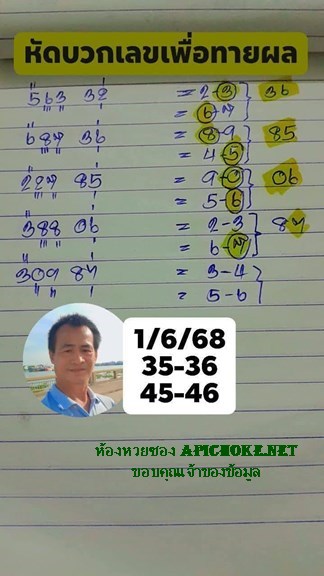 หัดบวกเลขเพื่อทายผล
563 32 = 2-3 36
= 6-7
687 36 = 8-9 85
= 4-5
227 85 = 9-0 06
= 5-6
388 06 = 2-3 87
= 6-7
309 87 = 3-4
= 5-6
1/6/68
35-36
45-46
ห้องหวยซอง APICHOKE.NET
ขอบคุณเจ้าของข้อมูล